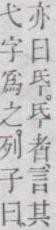 亦曰氐氐者言其
弋字爲之列子曰